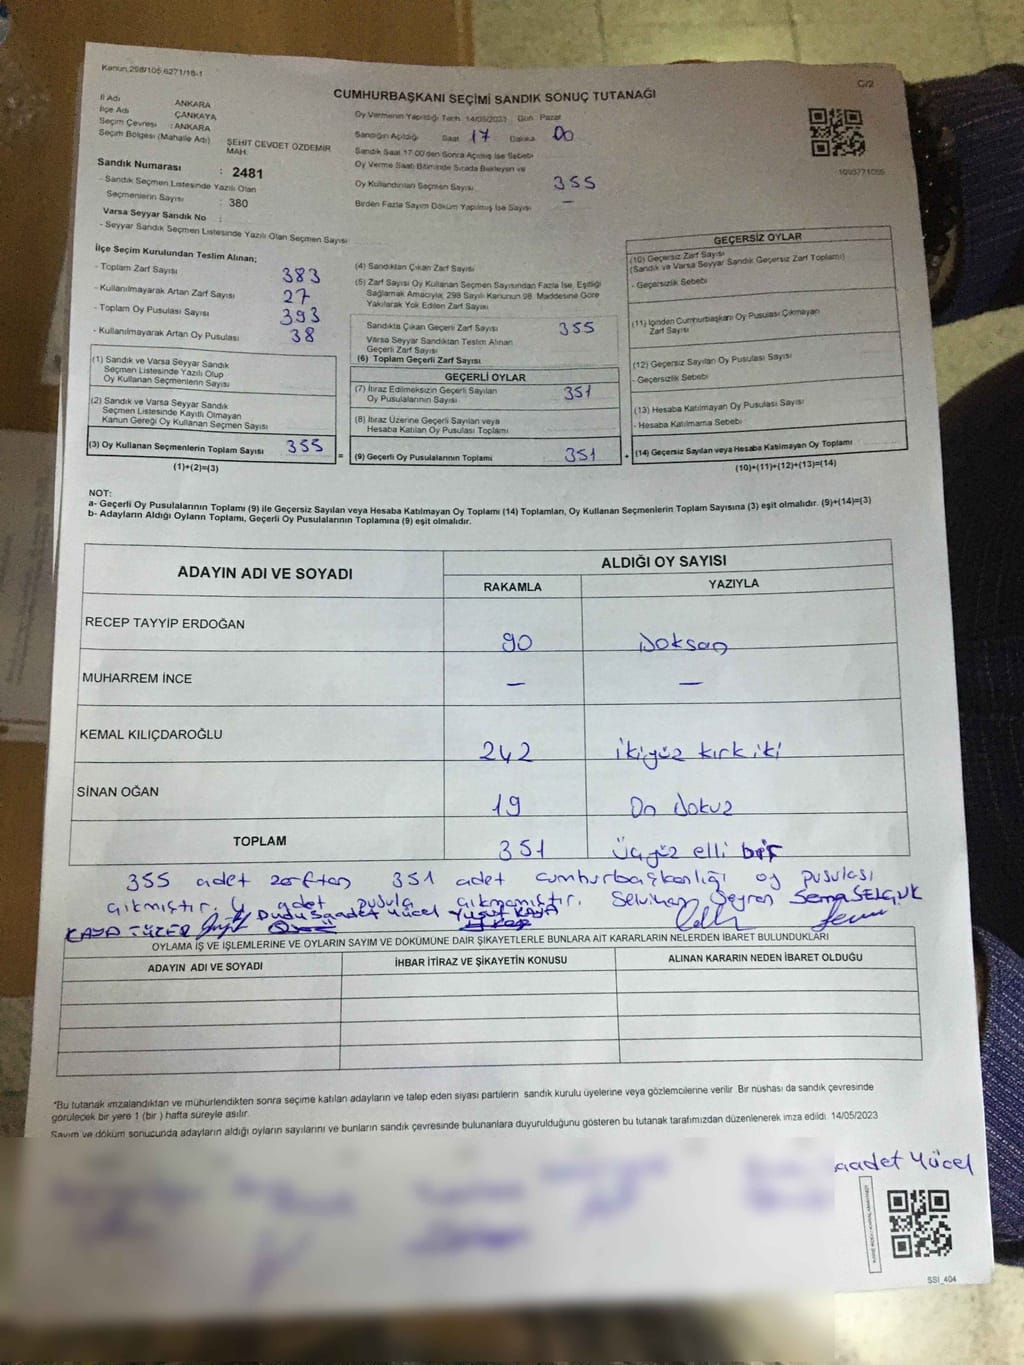 Kanun 298/105 6271/18-1
C/2
CUMHURBAŞKANI SEÇİMİ SANDIK SONUÇ TUTANAĞI
İl Adı ANKARA
İlçe Adı ÇANKAYA
Seçim Çevresi : ANKARA
Seçim Bölgesi (Mahalle Adı) ŞEHİT CEVDET ÖZDEMİR MAH.
Sandık Numarası : 2481
- Sandık Seçmen Listesinde Yazılı Olan
Seçmenlerin Sayısı : 380
Varsa Seyyar Sandık No :
- Seyyar Sandık Seçmen Listesinde Yazılı Olan Seçmen Sayısı
Oy Vermenin Yapıldığı Tarih 14/05/2023 Gün: Pazar
Sandığın Açıldığı Saat 17 Dakika 00
Sandık Saat 17:00'den Sonra Açılmış İse Sebebi
Oy Verme Saati Bitiminde Sırada Bekleyen ve
Oy Kullandırılan Seçmen Sayısı 355
Birden Fazla Sayım Döküm Yapılmış İse Sayısı —
1093771055
İlçe Seçim Kurulundan Teslim Alınan;
- Toplam Zarf Sayısı 383
- Kullanılmayarak Artan Zarf Sayısı 27
- Toplam Oy Pusulası Sayısı 393
- Kullanılmayarak Artan Oy Pusulası 38
(1) Sandık ve Varsa Seyyar Sandık
Seçmen Listesinde Yazılı Olup
Oy Kullanan Seçmenlerin Sayısı
(2) Sandık ve Varsa Seyyar Sandık
Seçmen Listesinde Kayıtlı Olmayan
Kanun Gereği Oy Kullanan Seçmen Sayısı
(3) Oy Kullanan Seçmenlerin Toplam Sayısı 355
(1)+(2)=(3)
(4) Sandıktan Çıkan Zarf Sayısı
(5) Zarf Sayısı Oy Kullanan Seçmen Sayısından Fazla İse, Eşitliği
Sağlamak Amacıyla; 298 Sayılı Kanunun 98. Maddesine Göre
Yakılarak Yok Edilen Zarf Sayısı
Sandıkta Çıkan Geçerli Zarf Sayısı 355
Varsa Seyyar Sandıktan Teslim Alınan
Geçerli Zarf Sayısı
(6) Toplam Geçerli Zarf Sayısı
GEÇERLİ OYLAR
(7) İtiraz Edilmeksizin Geçerli Sayılan
Oy Pusulalarının Sayısı : 351
(8) İtiraz Üzerine Geçerli Sayılan veya
Hesaba Katılan Oy Pusulası Toplamı
= (9) Geçerli Oy Pusulalarının Toplamı : 351
GEÇERSİZ OYLAR
(10) Geçersiz Zarf Sayısı
(Sandık ve Varsa Seyyar Sandık Geçersiz Zarf Toplamı)
- Geçersizlik Sebebi
(11) İçinden Cumhurbaşkanı Oy Pusulası Çıkmayan
Zarf Sayısı
(12) Geçersiz Sayılan Oy Pusulası Sayısı
- Geçersizlik Sebebi
(13) Hesaba Katılmayan Oy Pusulası Sayısı
- Hesaba Katılmama Sebebi
+ (14) Geçersiz Sayılan veya Hesaba Katılmayan Oy Toplamı
(10)+(11)+(12)+(13)=(14)
NOT:
a- Geçerli Oy Pusulalarının Toplamı (9) ile Geçersiz Sayılan veya Hesaba Katılmayan Oy Toplamı (14) Toplamları, Oy Kullanan Seçmenlerin Toplam Sayısına (3) eşit olmalıdır. (9)+(14)=(3)
b- Adayların Aldığı Oyların Toplamı, Geçerli Oy Pusulalarının Toplamına (9) eşit olmalıdır.
ADAYIN ADI VE SOYADI
ALDIĞI OY SAYISI
RAKAMLA YAZIYLA
RECEP TAYYİP ERDOĞAN 90 Doksan
MUHARREM İNCE — —
KEMAL KILIÇDAROĞLU 242 İkiyüz kırk iki
SİNAN OĞAN 19 On dokuz
TOPLAM 351 Üçyüz elli bir
355 adet zarftan 351 adet cumhurbaşkanlığı oy pusulası
çıkmıştır. 4 adet pusula çıkmamıştır. Selvihan Seyran Sema SELÇUK
KAYA TÜZER Dudu Saadet Yücel Yusuf KAYA
OYLAMA İŞ VE İŞLEMLERİNE VE OYLARIN SAYIM VE DÖKÜMÜNE DAİR ŞİKAYETLERLE BUNLARA AİT KARARLARIN NELERDEN İBARET BULUNDUKLARI
ADAYIN ADI VE SOYADI İHBAR İTİRAZ VE ŞİKAYETİN KONUSU ALINAN KARARIN NEDEN İBARET OLDUĞU
"Bu tutanak imzalandıktan ve mühürlendikten sonra seçime katılan adayların ve talep eden siyasi partilerin sandık kurulu üyelerine veya gözlemcilerine verilir. Bir nüshası da sandık çevresinde
görülecek bir yere 1 (bir ) hafta süreyle asılır.
Sayım ve döküm sonucunda adayların aldığı oyların sayılarını ve bunların sandık çevresinde bulunanlara duyurulduğunu gösteren bu tutanak tarafımızdan düzenlenerek imza edildi. 14/05/2023
aadet Yücel
SSI_404